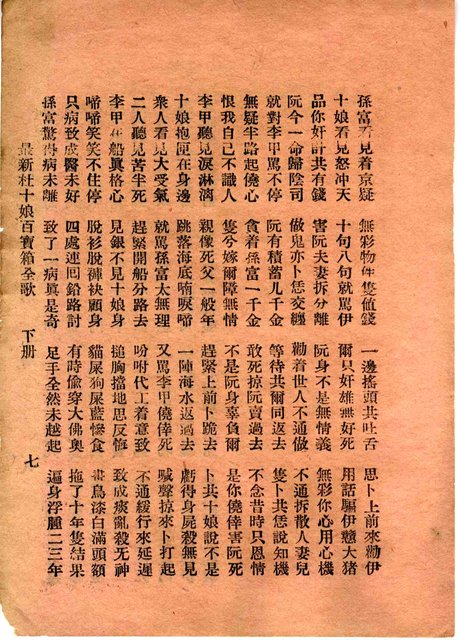 孫富看見着京疑 無彩物件隻值錢 一邊搖頭共吐舌 思卜上前來勸伊
十娘看見怒冲天 十句八句就罵伊 爾只奸雄無好死 用話騙伊戇大猪
品你奸計共有錢 害阮夫妻拆分離 阮身不是無情義 無彩你心用心機
阮今一命歸陰司 做鬼亦卜恁交纏 勸着世人不通做 不通拆散人妻兒
就對李甲罵不停 阮有積蓄几千金 等待共爾同返去 隻卜共恁說知機
無疑半路起僥心 貪着孫富一千金 敢死掠阮賣過去 不念昔時只恩情
恨我自己不識人 隻兮嫁爾障無情 不是阮身辜負爾 是你僥倖害阮死
李甲聽見淚淋漓 親像死父一般年 趕緊上前卜跪去 卜共十娘說不是
十娘抱匣在身邊 跳落海底喃唳啼 一陣海水返過去 虧得身屍殺無見
衆人看見大受氣 就罵孫富太無理 又罵李甲僥倖死 喊聲掠來卜打起
二人聽見苦半死 趕緊開船分路去 吩咐代工着意致 不通緩行來延遲
李甲在船眞格心 見銀不見十娘身 搥胸擋地思反悔 致成痰亂殺无神
啼啼笑笑不住停 脫衫脫褲袂顧身 貓屎狗屎藍慘食 畫鳥漆白滿頭額
只病致成醫未好 四處連回鉛路討 有時偷穿大佛奧 拖了十年隻結果
孫富驚得病未離 致了一病眞是奇 足手全然未越起 遍身浮腫二三年
最新杜十娘百寶箱全歌 下册 七